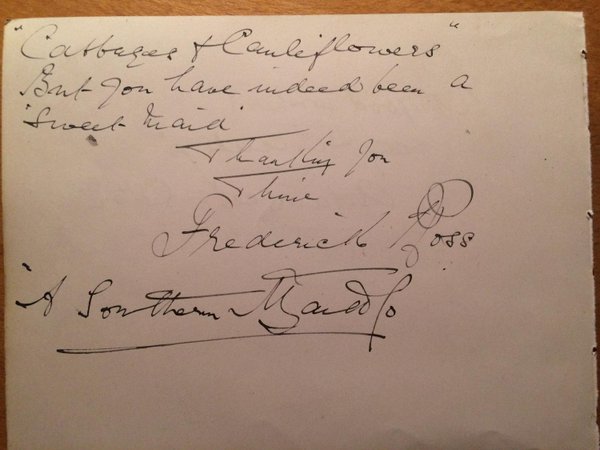 "Cabbages & Cauliflowers"
But you have indeed been a
'Sweet Maid'
Thanking you
Thine
Frederick Ross
"A Southern Maid" Co